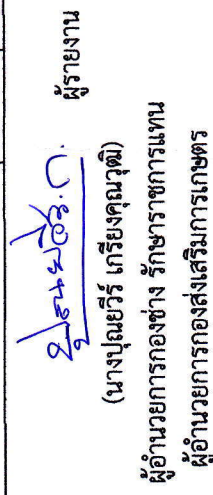 ผู้รายงาน
(นางปุณยวีร์ เกรียงคุณวุฒิ)
ผู้อำนวยการกองช่าง รักษาราชการแทน
ผู้อำนวยการกองส่งเสริมการเกษตร